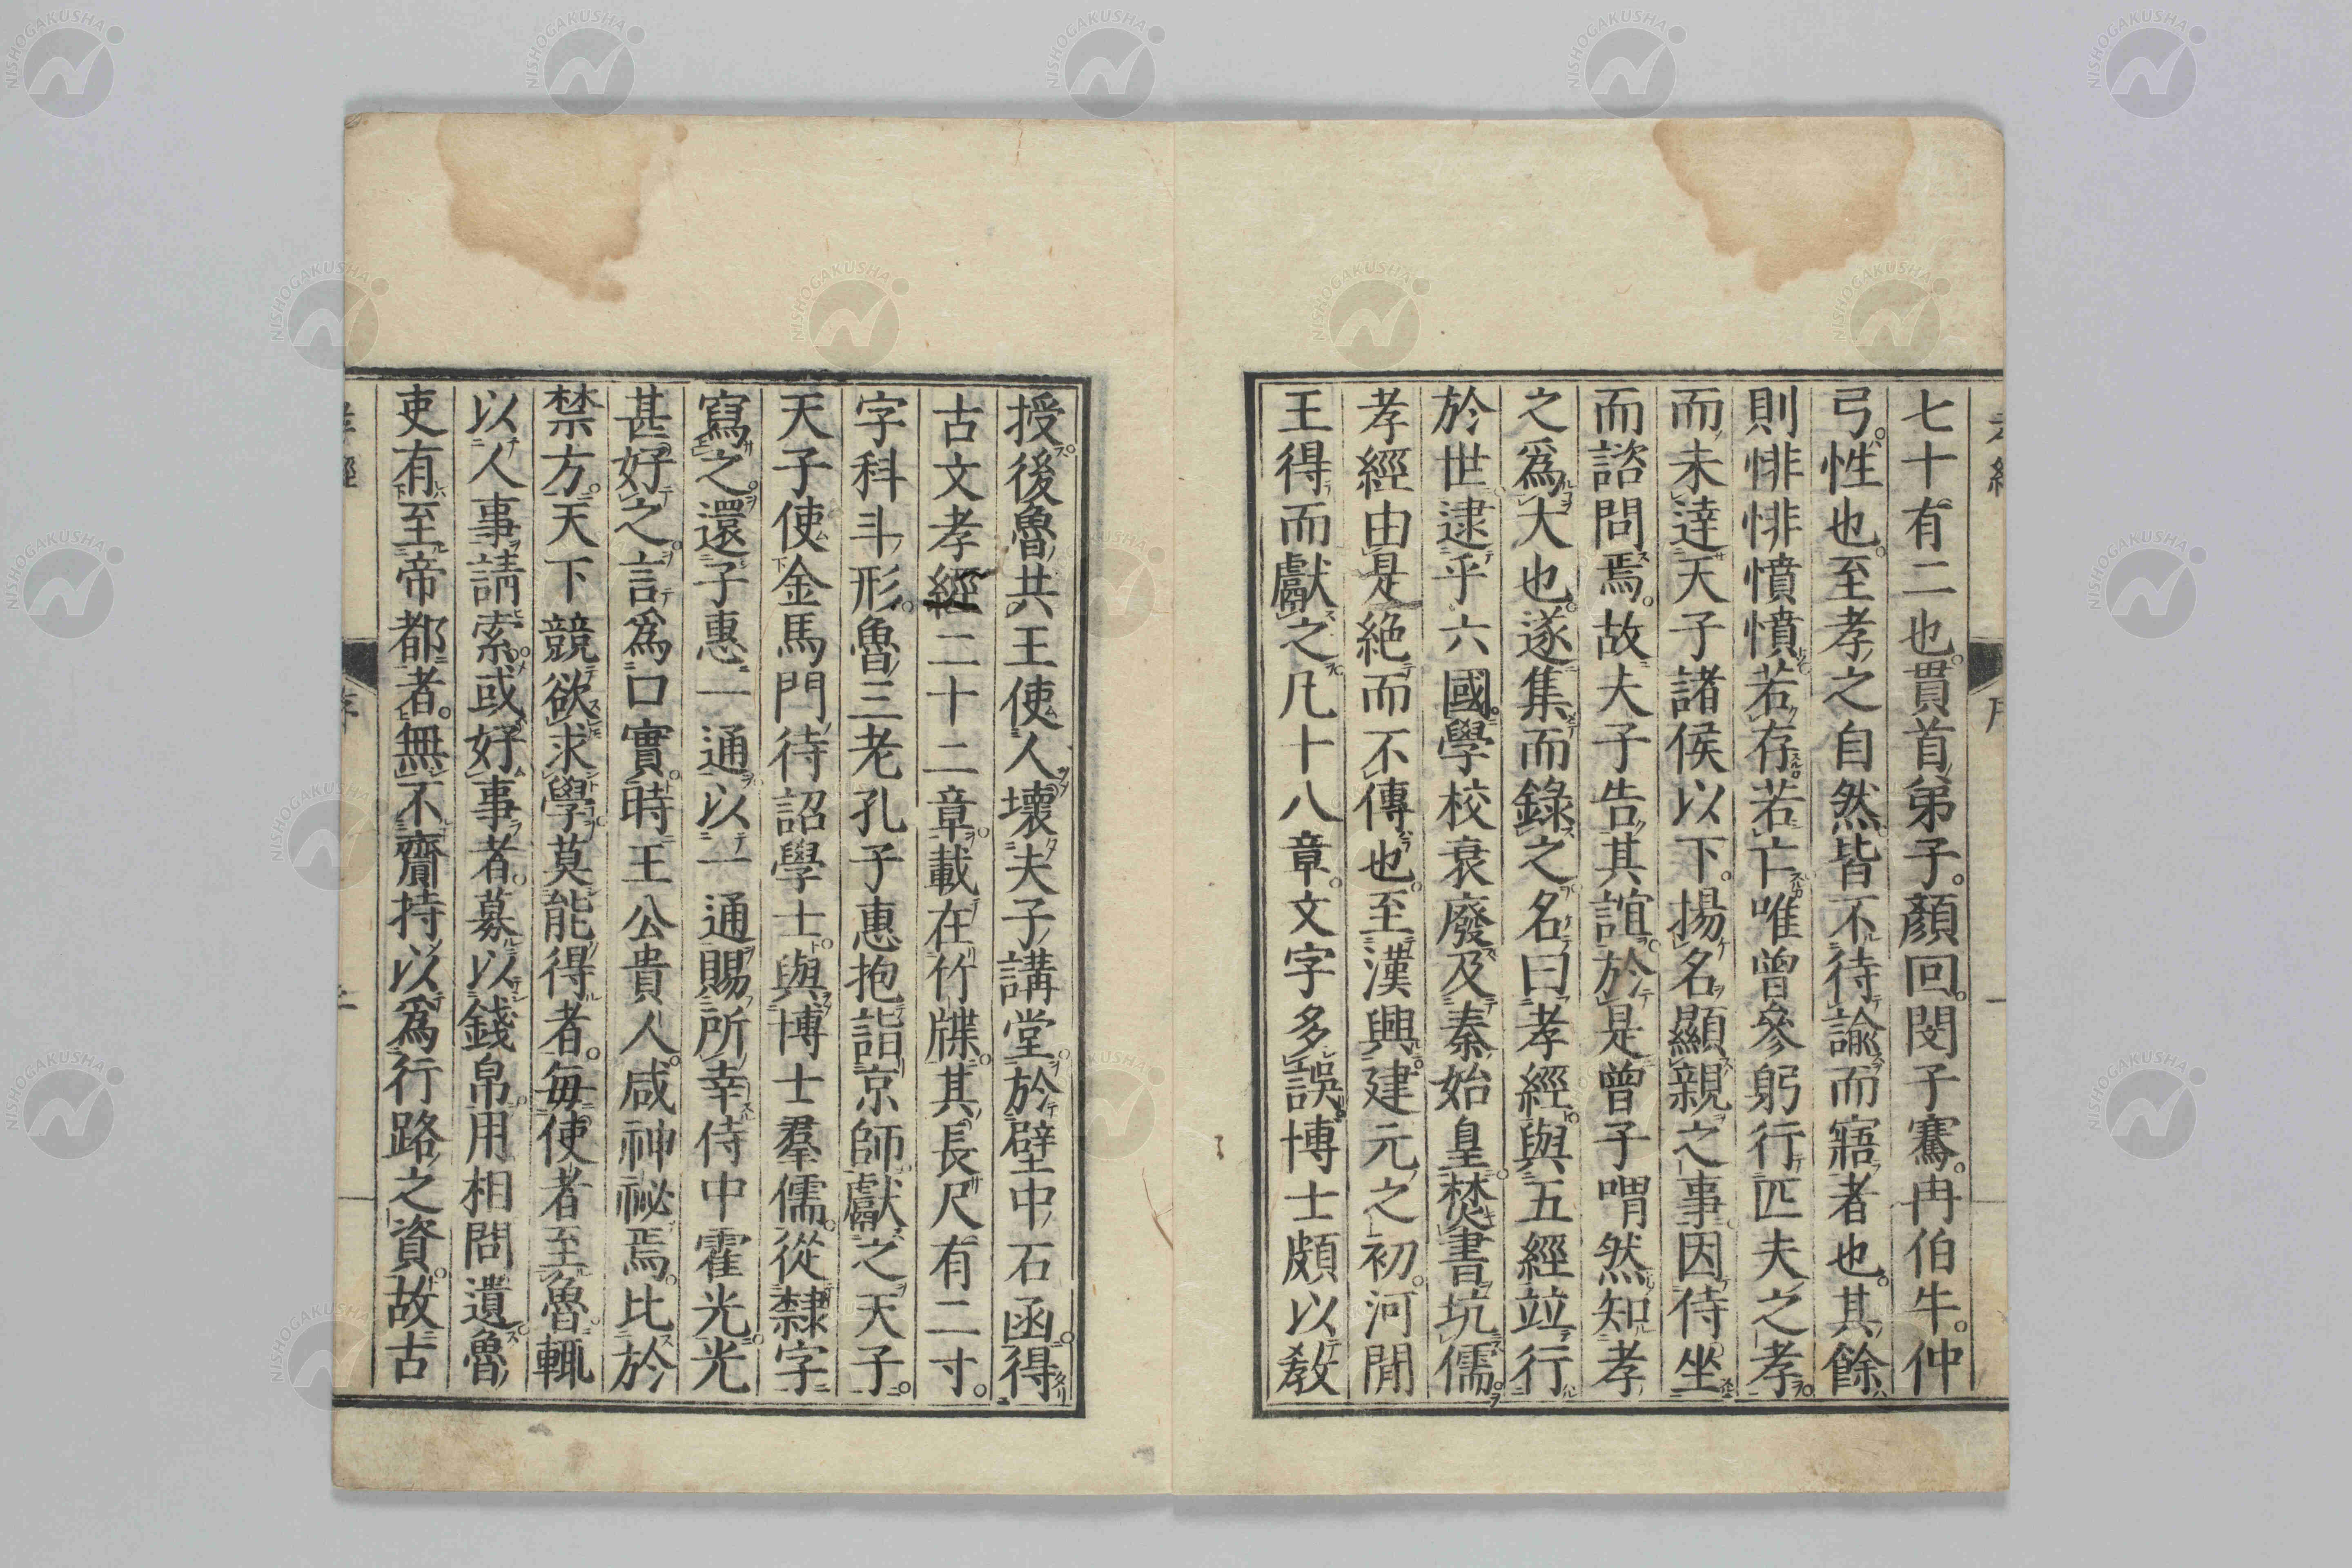 七十有二也貫首弟子顏回閔子騫冉伯牛仲
弓性也至孝之自然皆不待諭而寤者也其餘
則悱悱憤憤若存若亡唯曾參躬行匹夫之孝
而未達天子諸侯以下揚名顯親之事因侍坐
而諮問焉故夫子告其誼於是曾子喟然知孝
之爲大也遂集而錄之名曰孝經與五經竝行
於世逮乎六國學校衰廢及秦始皇焚書坑儒
孝經由是絶而不傳也至漢興建元之初河閒
王得而獻之凡十八章文字多誤博士頗以敎
授後魯共王使人壞夫子講堂於壁中石函得
古文孝經二十二章載在竹牒其長尺有二寸
字科斗形魯三老孔子惠抱詣京師獻之天子
天子使金馬門待詔學士與博士羣儒從隸字
寫之還子惠一通以一通賜所幸侍中霍光光
甚好之言爲口實時王公貴人咸神祕焉比於
禁方天下競欲求學莫能得者每使者至魯輒
以人事請索或好事者募以錢帛用相問遺魯
吏有至帝都者無不齎持以爲行路之資故古
NISHOGAKUSHA